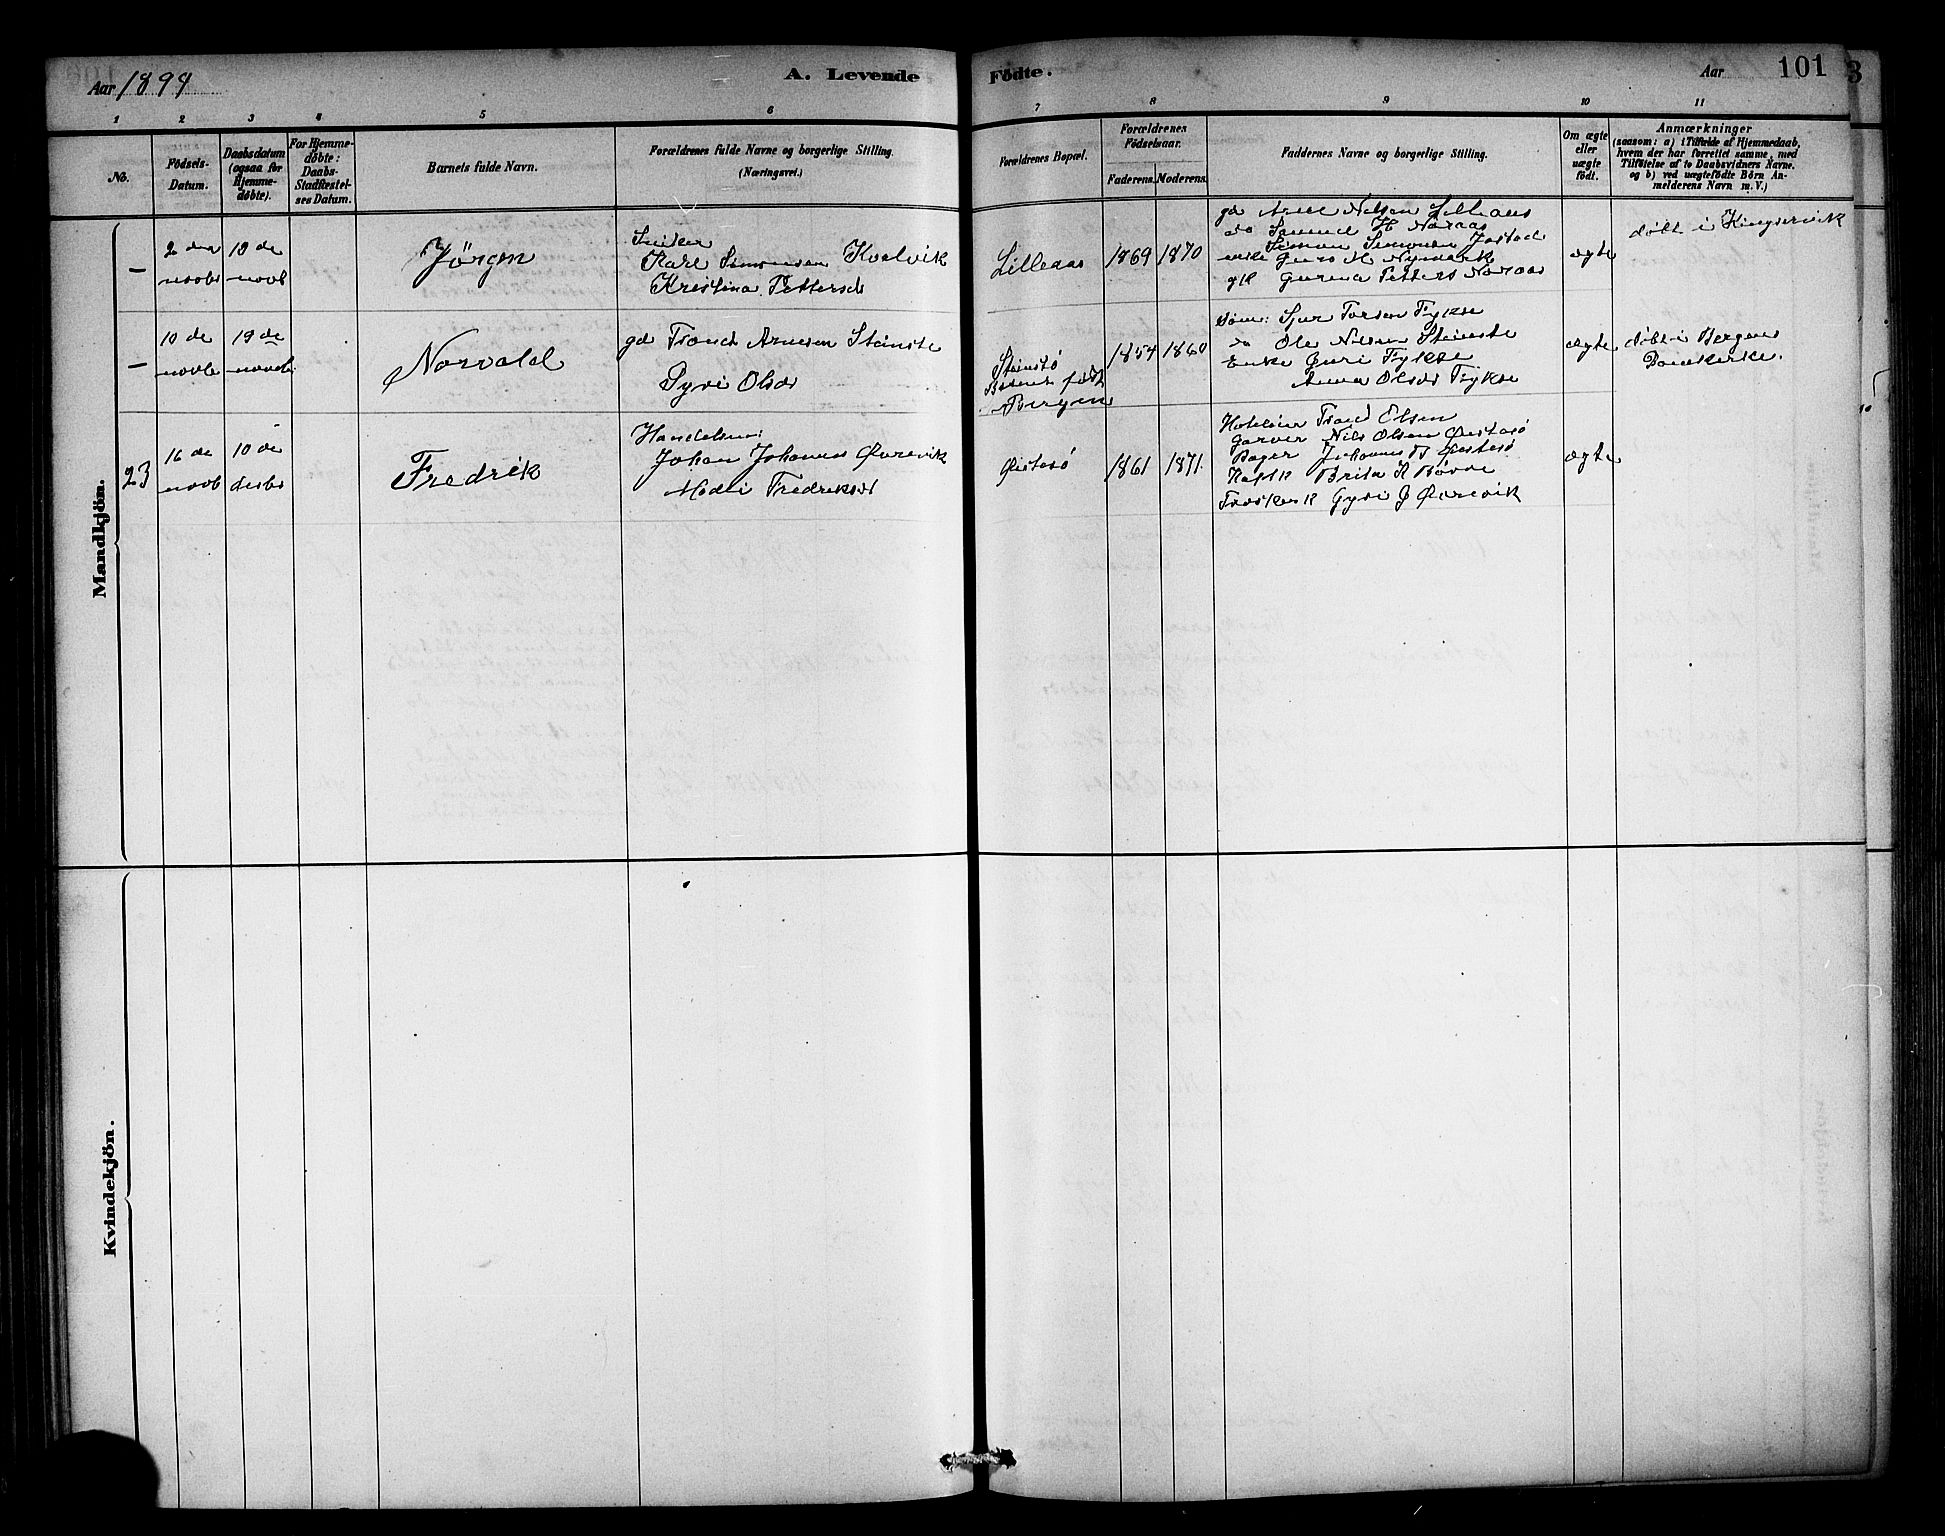 Aar 1894
A. Levende
Födte.
Aar
101
3
1 2 3 4 5 6 7 8 9 10 11
No.
Födsels-
Datum.
Daabsdatum
(ogsaa for
Hjemme-
döbte).
For Hjemme-
döbte:
Daabs-
Stadfæstel-
ses Datum.
Barnets fulde Navn.
Forældrenes fulde Navne og borgerlige Stilling.
(Næringsvei.)
Forældrenes Bopæl.
Forældrenes
Födselsaar.
Faderens. Moderens.
Faddernes Navne og borgerlige Stilling.
Om ægte
eller
uægte
födt.
Anmærkninger
(saasom: a) i Tilfælde af Hjemmedaab,
hvem der har forrettet samme, med
Tilföielse af to Daabsvidners Navne.
og b) ved uægtefödte Börn An-
melderens Navn m. V.)
Mandkjön.
–
2 den
novbr
18 de
novb
Jörgen
Karl Simonsen Kvalvik
Kristina Pettersd
Lilleaas
1869
1870
gd Arne Nelsen Lilleaas
do Samund H Noraas
Simon Simonsen Jostad
enke Guro M. Nymark
gk Gurina Petters Noraas
ægte
döbt i Kingservik
–
10 de
novb
19 de
novb
Norvald
gd Trond Arnesen Steinstø
Gyri Olsdr
Steinstø
Barnet født
Bergen
1854
1860
Sjur Torsen Fykse
do Ole Nilsen Steinstø
Enke Guri Fykse
Anna Olsdr Fykse
ægte
döbt i Bergens
Domkirke.
23
16 de
novb
10 de
desbr
Fredrik
Handelsm:
Johan Johannes Øurevik
Fredriksdt
Østesø
1861
1871.
Trond Olsen
Garver Nils Olsen Øistesø
Bager Johannes T Øistesø
Brita K Børve
Gyri J Øurevik
ægte
Kvindekjön.